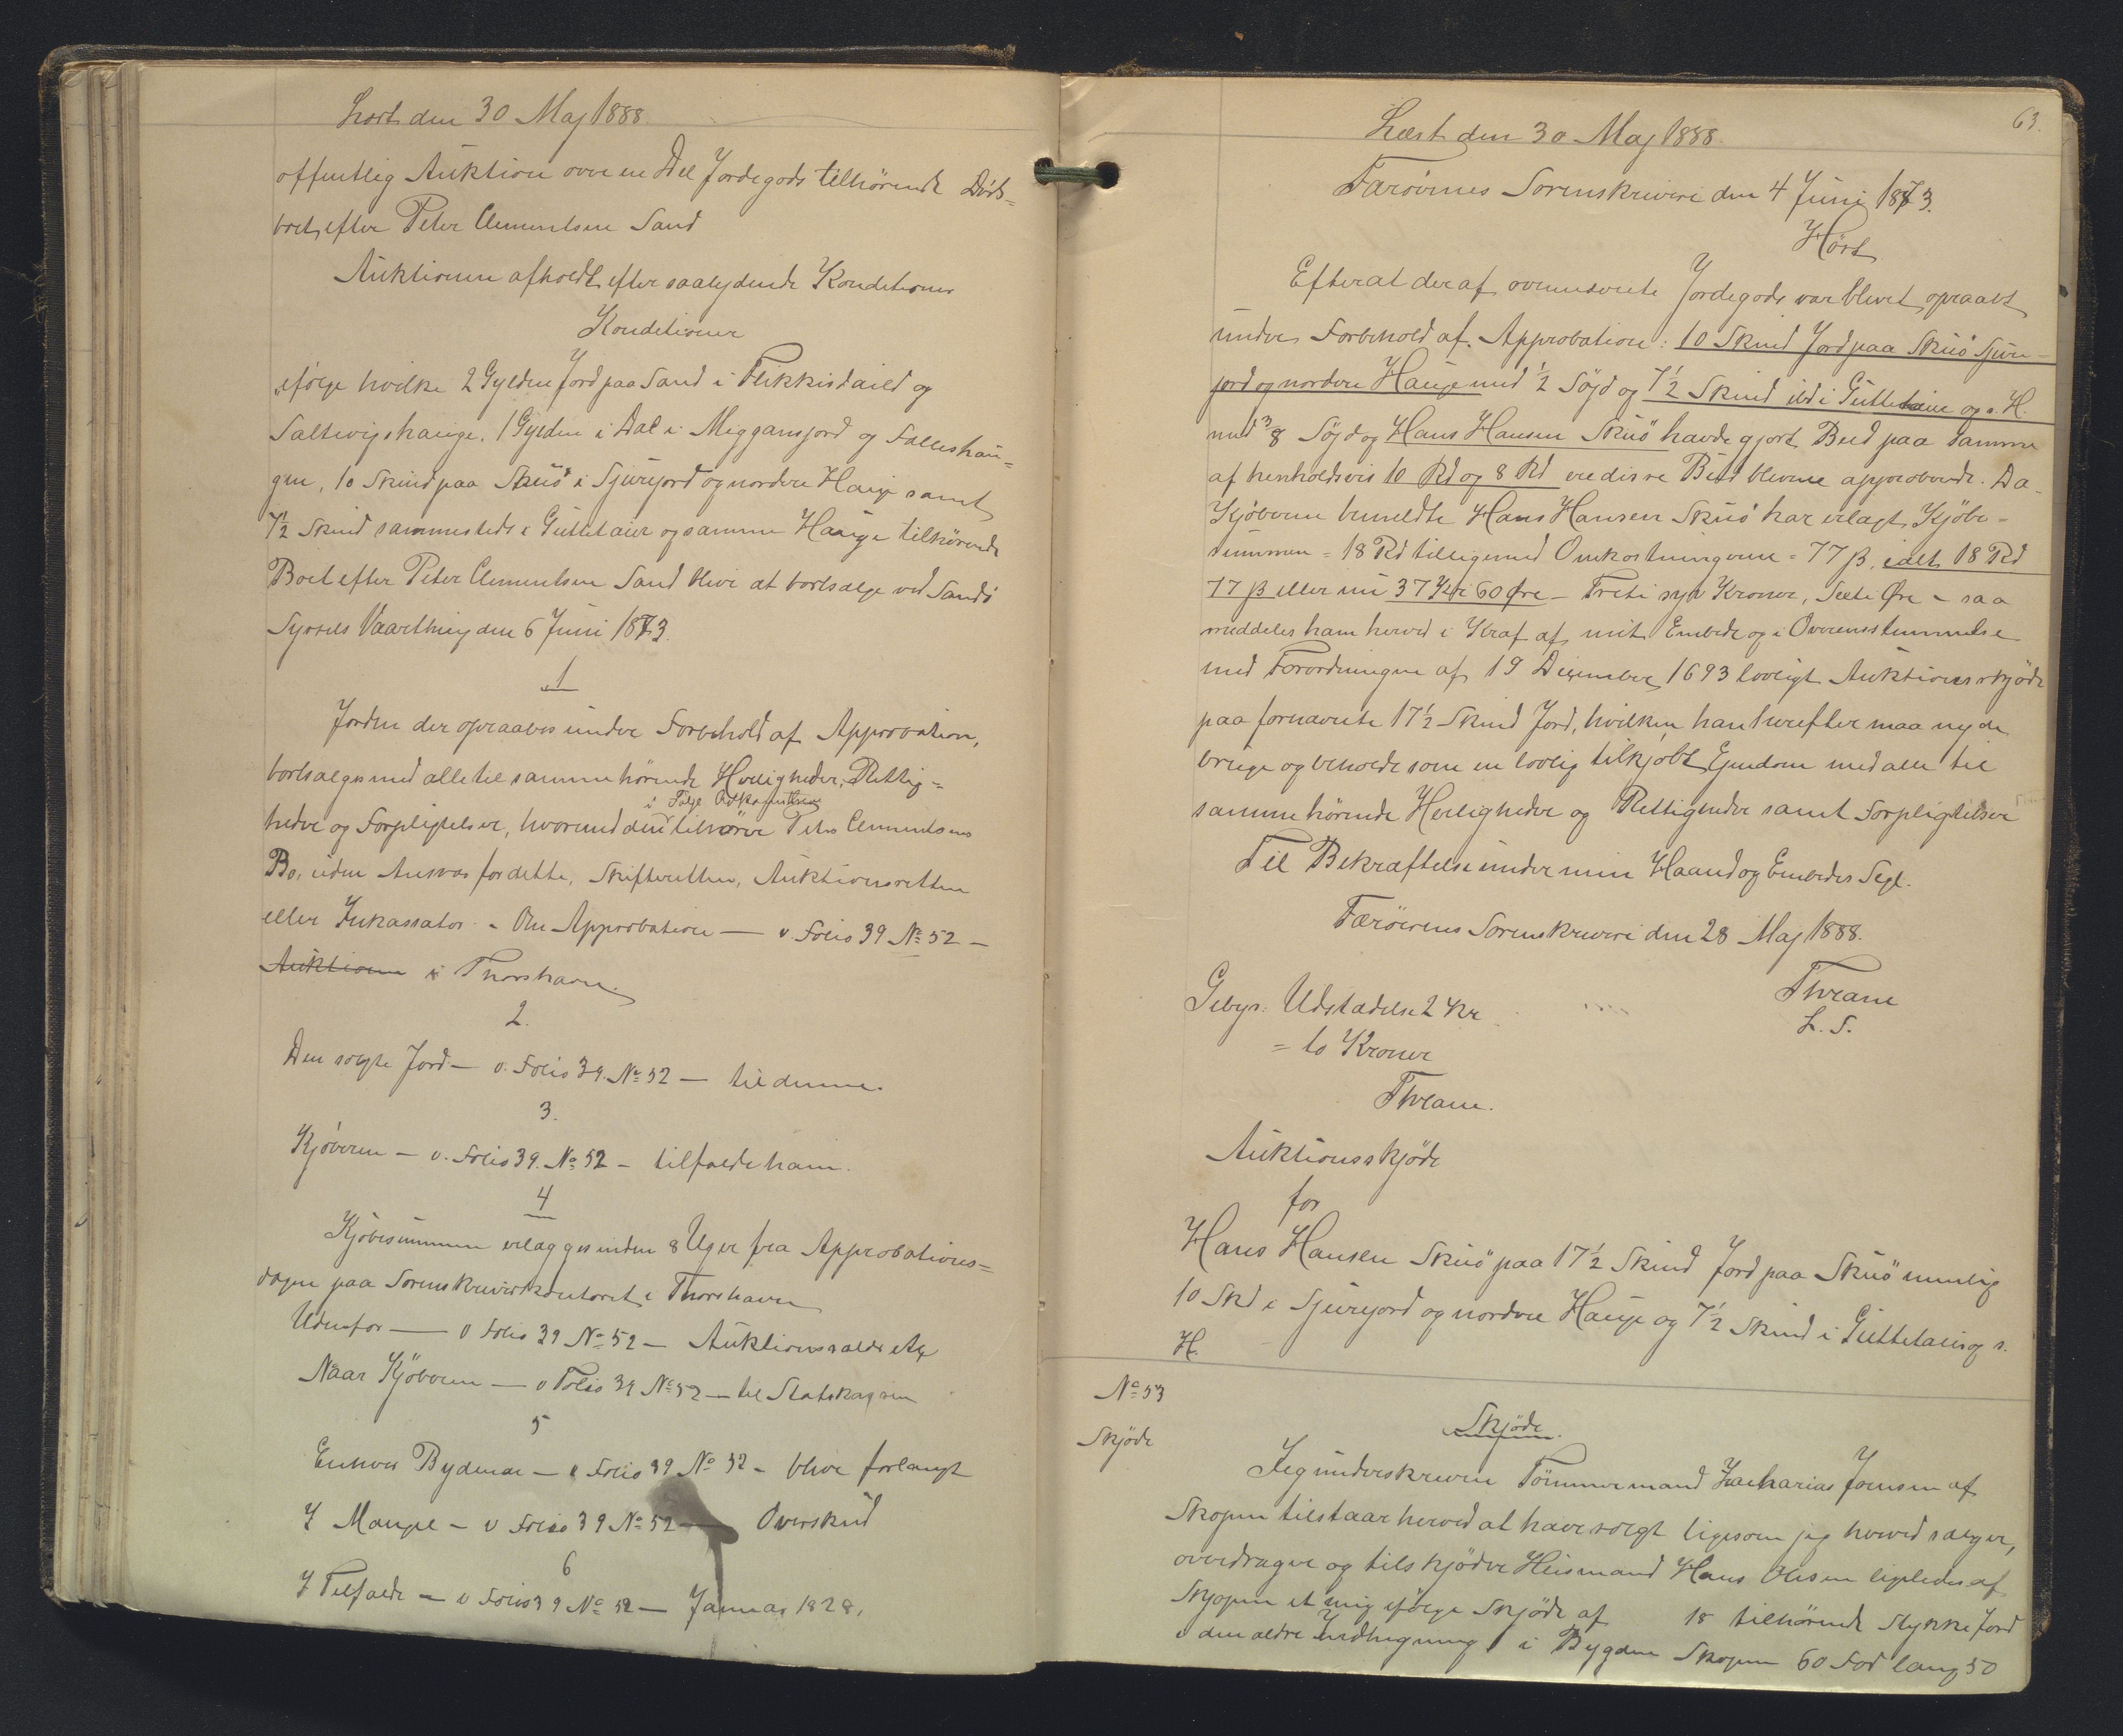 Læst den 30 Maj 1888.
offentlig Auktion over en Del Jordegods tilhørende Døds=
boet efter Peter Clementsen Sand
Auktionen afholdt efter saalydende Konditioner
Konditioner
ifølge hvilke 2 Gylden Jord paa Sand i Flikkisdaild og
Saltvigshauge, 1 Gylden i Dal i Meggansjord og Falleshau=
gen, 10 Skind paa Skuö i Sjurejord og nordre Hauge samt
7½ Skind sammesteds i Guttetaier og samme Hauge tilhørende
Boet efter Peter Clementsen Sand blive at bortsælge ved Sandö
Syssels Vaarthing den 6 Juni 1873.
1
Jorden der opraabes under Forbehold af Approbation,
bortsælges med alle til samme hørende Herligheder, Rettig=
i Følge Adkomsterne
heder og Forpligtelser, hvormed den tilhører Peter Clementsens
Bo, uden Ansvar for dette, Skifteretten, Auktionsretten
eller Inkassator. - Om Approbation — v. Folio 39 No 52 —
Auktionen i Thorshavn.
2.
Den solgte Jord — v. Folio 39. No 52 — til denne.
3.
Kjöberen — v. Folio 39. No 52 — tilfalde ham.
4
Kjöbesummen erlægges inden 8 Uger fra Approbations=
dagen paa Sorenskriverkontoret i Thorshavn
Udenfor — v Folio 39 No 52 — Auktionssalær etc
Naar Kjöberen — v Folio 39 No 52 — til Statskassen
5
Enhver Bydende — v Folio 39 No 52 - blive forlangt
I Mangel — v Folio 39 No 52 — Overskud
6
I Tilfælde — v Folio 39 No 52 — Januar 1828.
63.
Læst den 30 Maj 1888.
Færöernes Sorenskriveri den 4 Juni 1873.
Hört
Efterat der af ovennævnte Jordegods var blevet opraabt
under Forbehold af Approbation: 10 Skind Jord paa Skuö Sjure-
jord og nordre Hauge med ½ Söjd og 7½ Skind ibd i Guttetaier og s. H.
med 3/8 Söjd og Hans Hansen Skuö havde gjort Bud paa samme
af henholdsvis 10 Rd og 8 Rd ere disse Bud blevne approberede. Da
Kjöberen bemeldte Hans Hansen Skuö har erlagt Kjöbe-
summen = 18 Rd tilligemed Omkostningerne = 77 β, ialt 18 Rd
77 β eller nu 37 Kr 60 Øre - Treti syv Kroner, Seeti Øre - saa
meddeles ham herved i Kraf af mit Embede og i Overensstemmelse
med Forordningen af 19 December 1693 lovligt Auktionsskjöde
paa fornævnte 17½ Skind Jord, hvilken han herefter maa nyde
bruge og beholde som en lovlig tilkjöbt Ejendom med alle til
samme hörende Herligheder og Rettigheder samt Forpligtelser
Til Bekræftelse under min Haand og Embedes Segl.
Færöernes Sorenskriveri den 28 Maj 1888.
Threane
L. S.
Gebyr: Udstædelse 2 Kr
= to Kroner
Threane.
Auktionsskjöde
for
Hans Hansen Skuö paa 17½ Skind Jord paa Skuö nemlig
10 Skd i Sjurejord og nordre Hauge og 7½ Skind i Guttetaier og s.
H.
No 53
Skjöde
Skjöde.
Jeg underskrevne Tömmermand Zacharias Joensen af
Skopen tilstaar herved at have solgt ligesom jeg herved sælger,
overdrager og tilskjöder Husmand Hans Olesen ligeledes af
Skopen et mig ifölge Skjöde af 18 tilhörende Stykke Jord
i den ældre Indhegning i Bygden Skopen 60 Fod lang 50